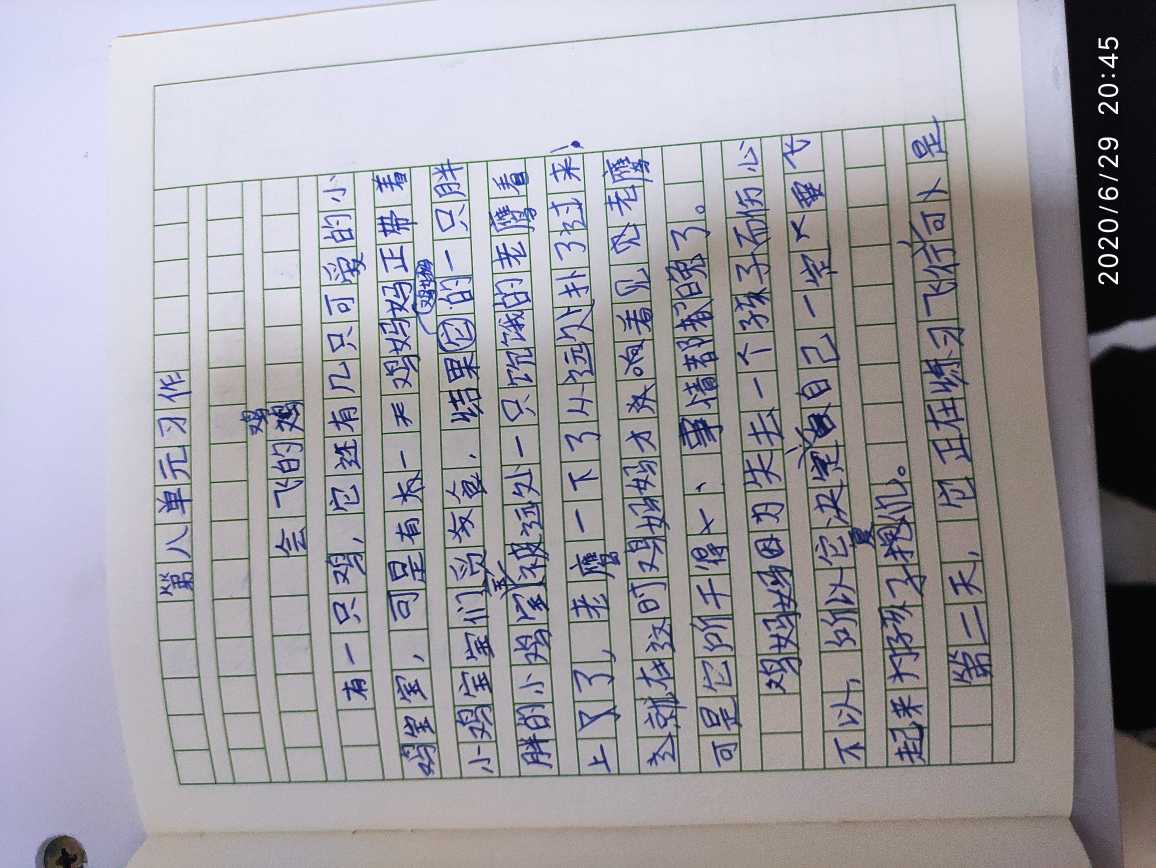 第八单元习作
鸡
会飞的鸡
有一只鸡，它还有几只可爱的小
鸡宝宝，可是有一天鸡妈妈正带着
鸡妈妈
小鸡宝宝们觅食，结果它的一只胖
胖的小鸡宝被远处一只饥饿的老鹰看
上了，老鹰一下了从远处扑了过来！
就在这时鸡妈妈才发响看见见老鹰
可是它所干得，事情都晚了。
鸡妈妈因为失去一个孩子而伤心
不以，所以它决定自己一定要飞
起来为孩子报仇。
第二天，它正在练习飞行可人是
2020/6/29 20:45